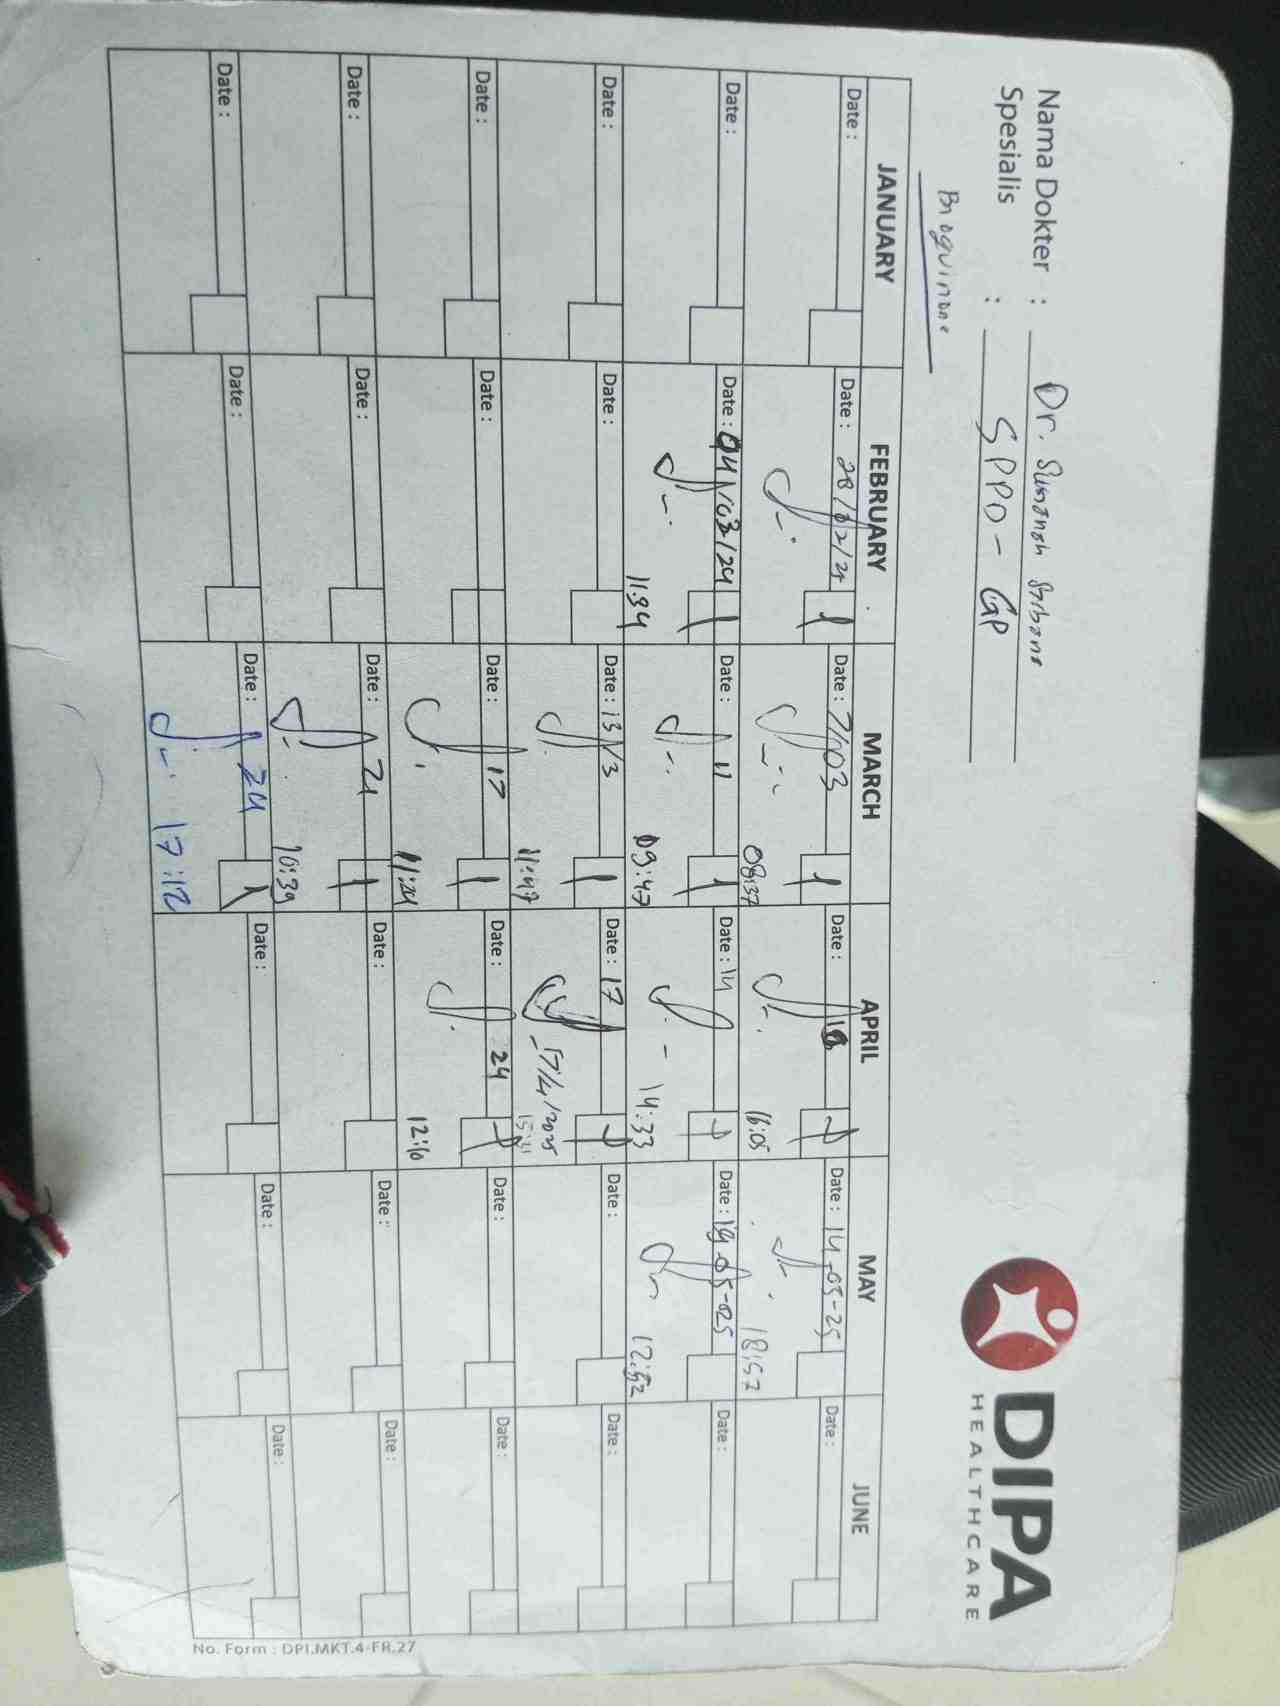 Nama Dokter : Dr.
Spesialis : SPPD - GP
DIPA
HEALTHCARE
JANUARY FEBRUARY MARCH APRIL MAY JUNE
Date : Date : Date : 7/03 Date : Date : 14-05-25 Date :
08:37 16:05 18:57
Date : Date : 04/03/24 Date : 11 Date : 14 Date : 05-025 Date :
11:34 09:47 14:33 12:52
Date : Date : Date : 13/3 Date : 17 Date : Date :
11:47 17/4/2025
Date : Date : Date : 17 Date : 24 Date : Date :
11:24 12:10
Date : Date : Date : 21 Date : Date : Date :
10:39
Date : Date : Date : 24 Date : Date : Date :
17:12
No. Form : DPI.MKT.4-FR.27